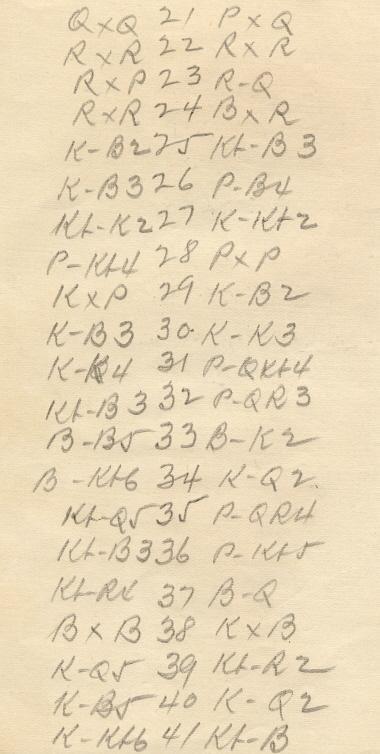 QxQ 21 PxQ
RxR 22 RxR
RxP 23 R-Q
RxR 24 BxR
K-B2 25 Kt-B3
K-B3 26 P-B4
Kt-K2 27 K-Kt2
P-Kt4 28 PxP
KxP 29 K-B2
K-B3 30 K-K3
K-K4 31 P-QKt4
Kt-B3 32 P-QR3
B-B5 33 B-K2
B-Kt6 34 K-Q2.
Kt-Q5 35 P-QR4
Kt-B3 36 P-Kt5
Kt-R4 37 B-Q
BxB 38 KxB
K-Q5 39 Kt-R2
K-B5 40 K-Q2
K-Kt6 41 Kt-B